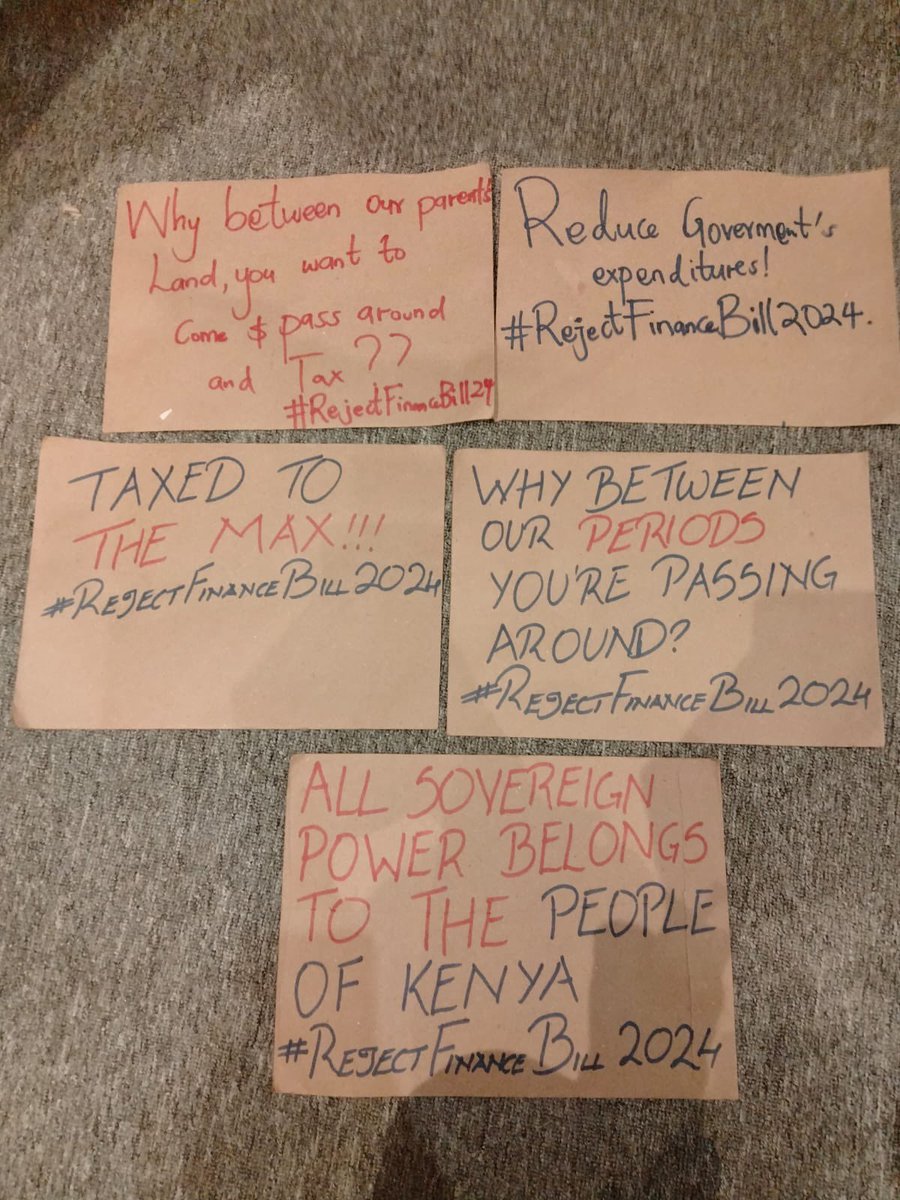 Why between our parents'
Land, you want to
Come & pass around
and Tax ??
#RejectFinanceBill24
Reduce Goverment's
expenditures!
#RejectFinanceBill2024.
TAXED TO
THE MAX!!!
#REJECTFINANCEBILL2024
WHY BETWEEN
OUR PERIODS
YOU'RE PASSING
AROUND?
#REJECTFINANCEBILL2024
ALL SOVEREIGN
POWER BELONGS
TO THE PEOPLE
OF KENYA
#REJECTFINANCE BILL 2024